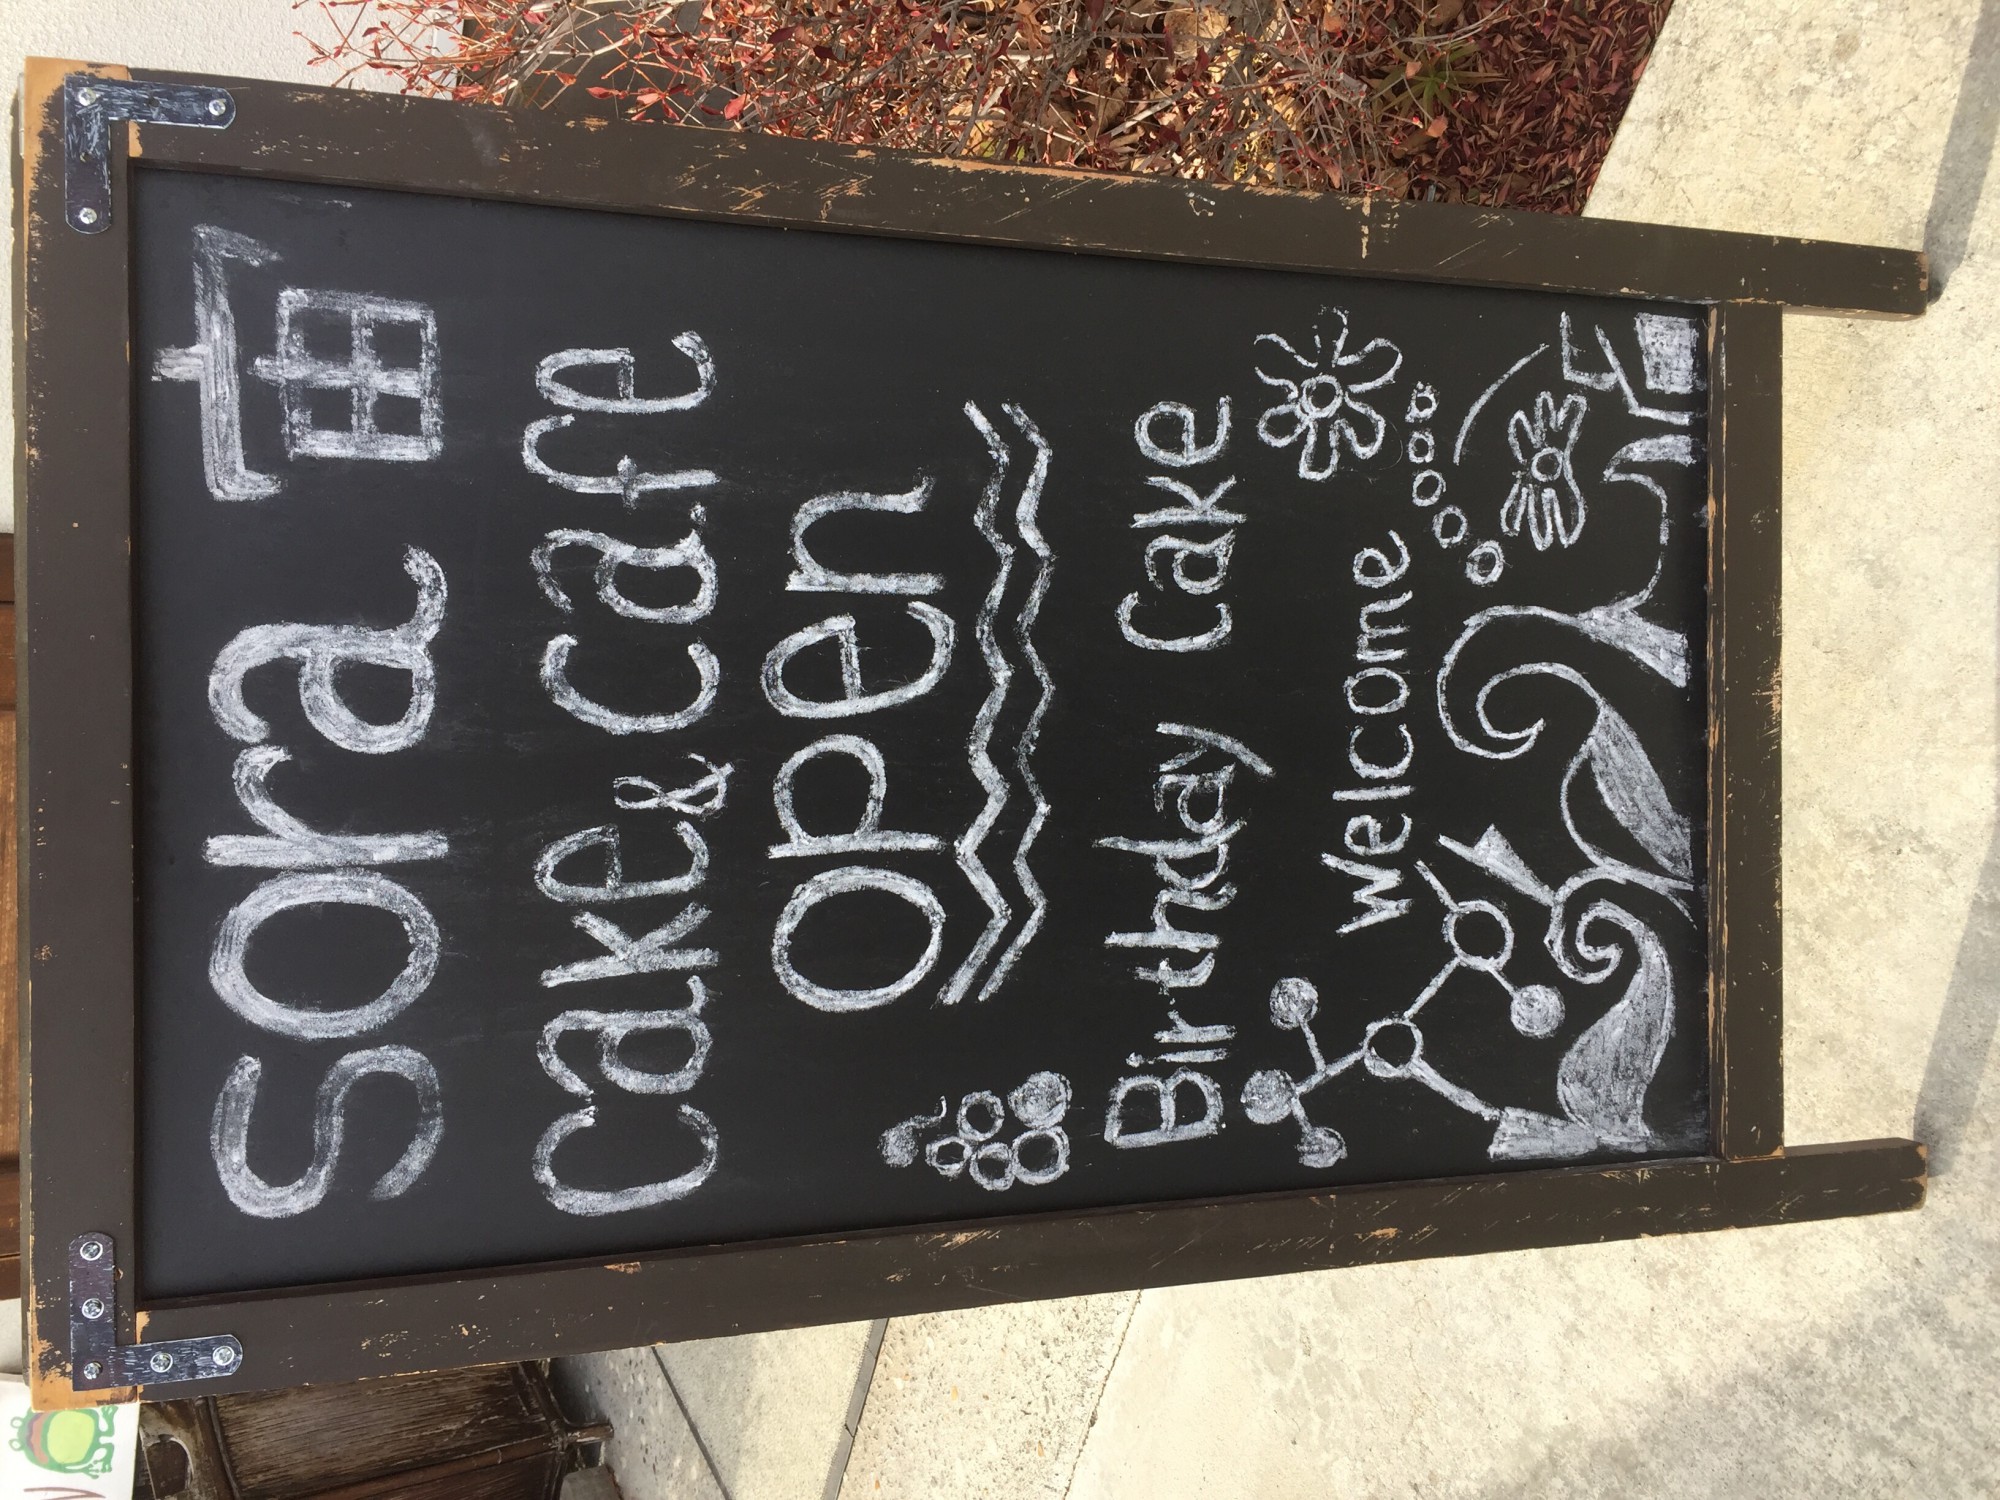 sora 宙
cake & cafe
open
Birthday cake
welcome